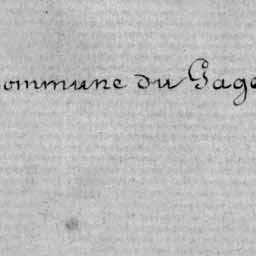 ommune du Gage